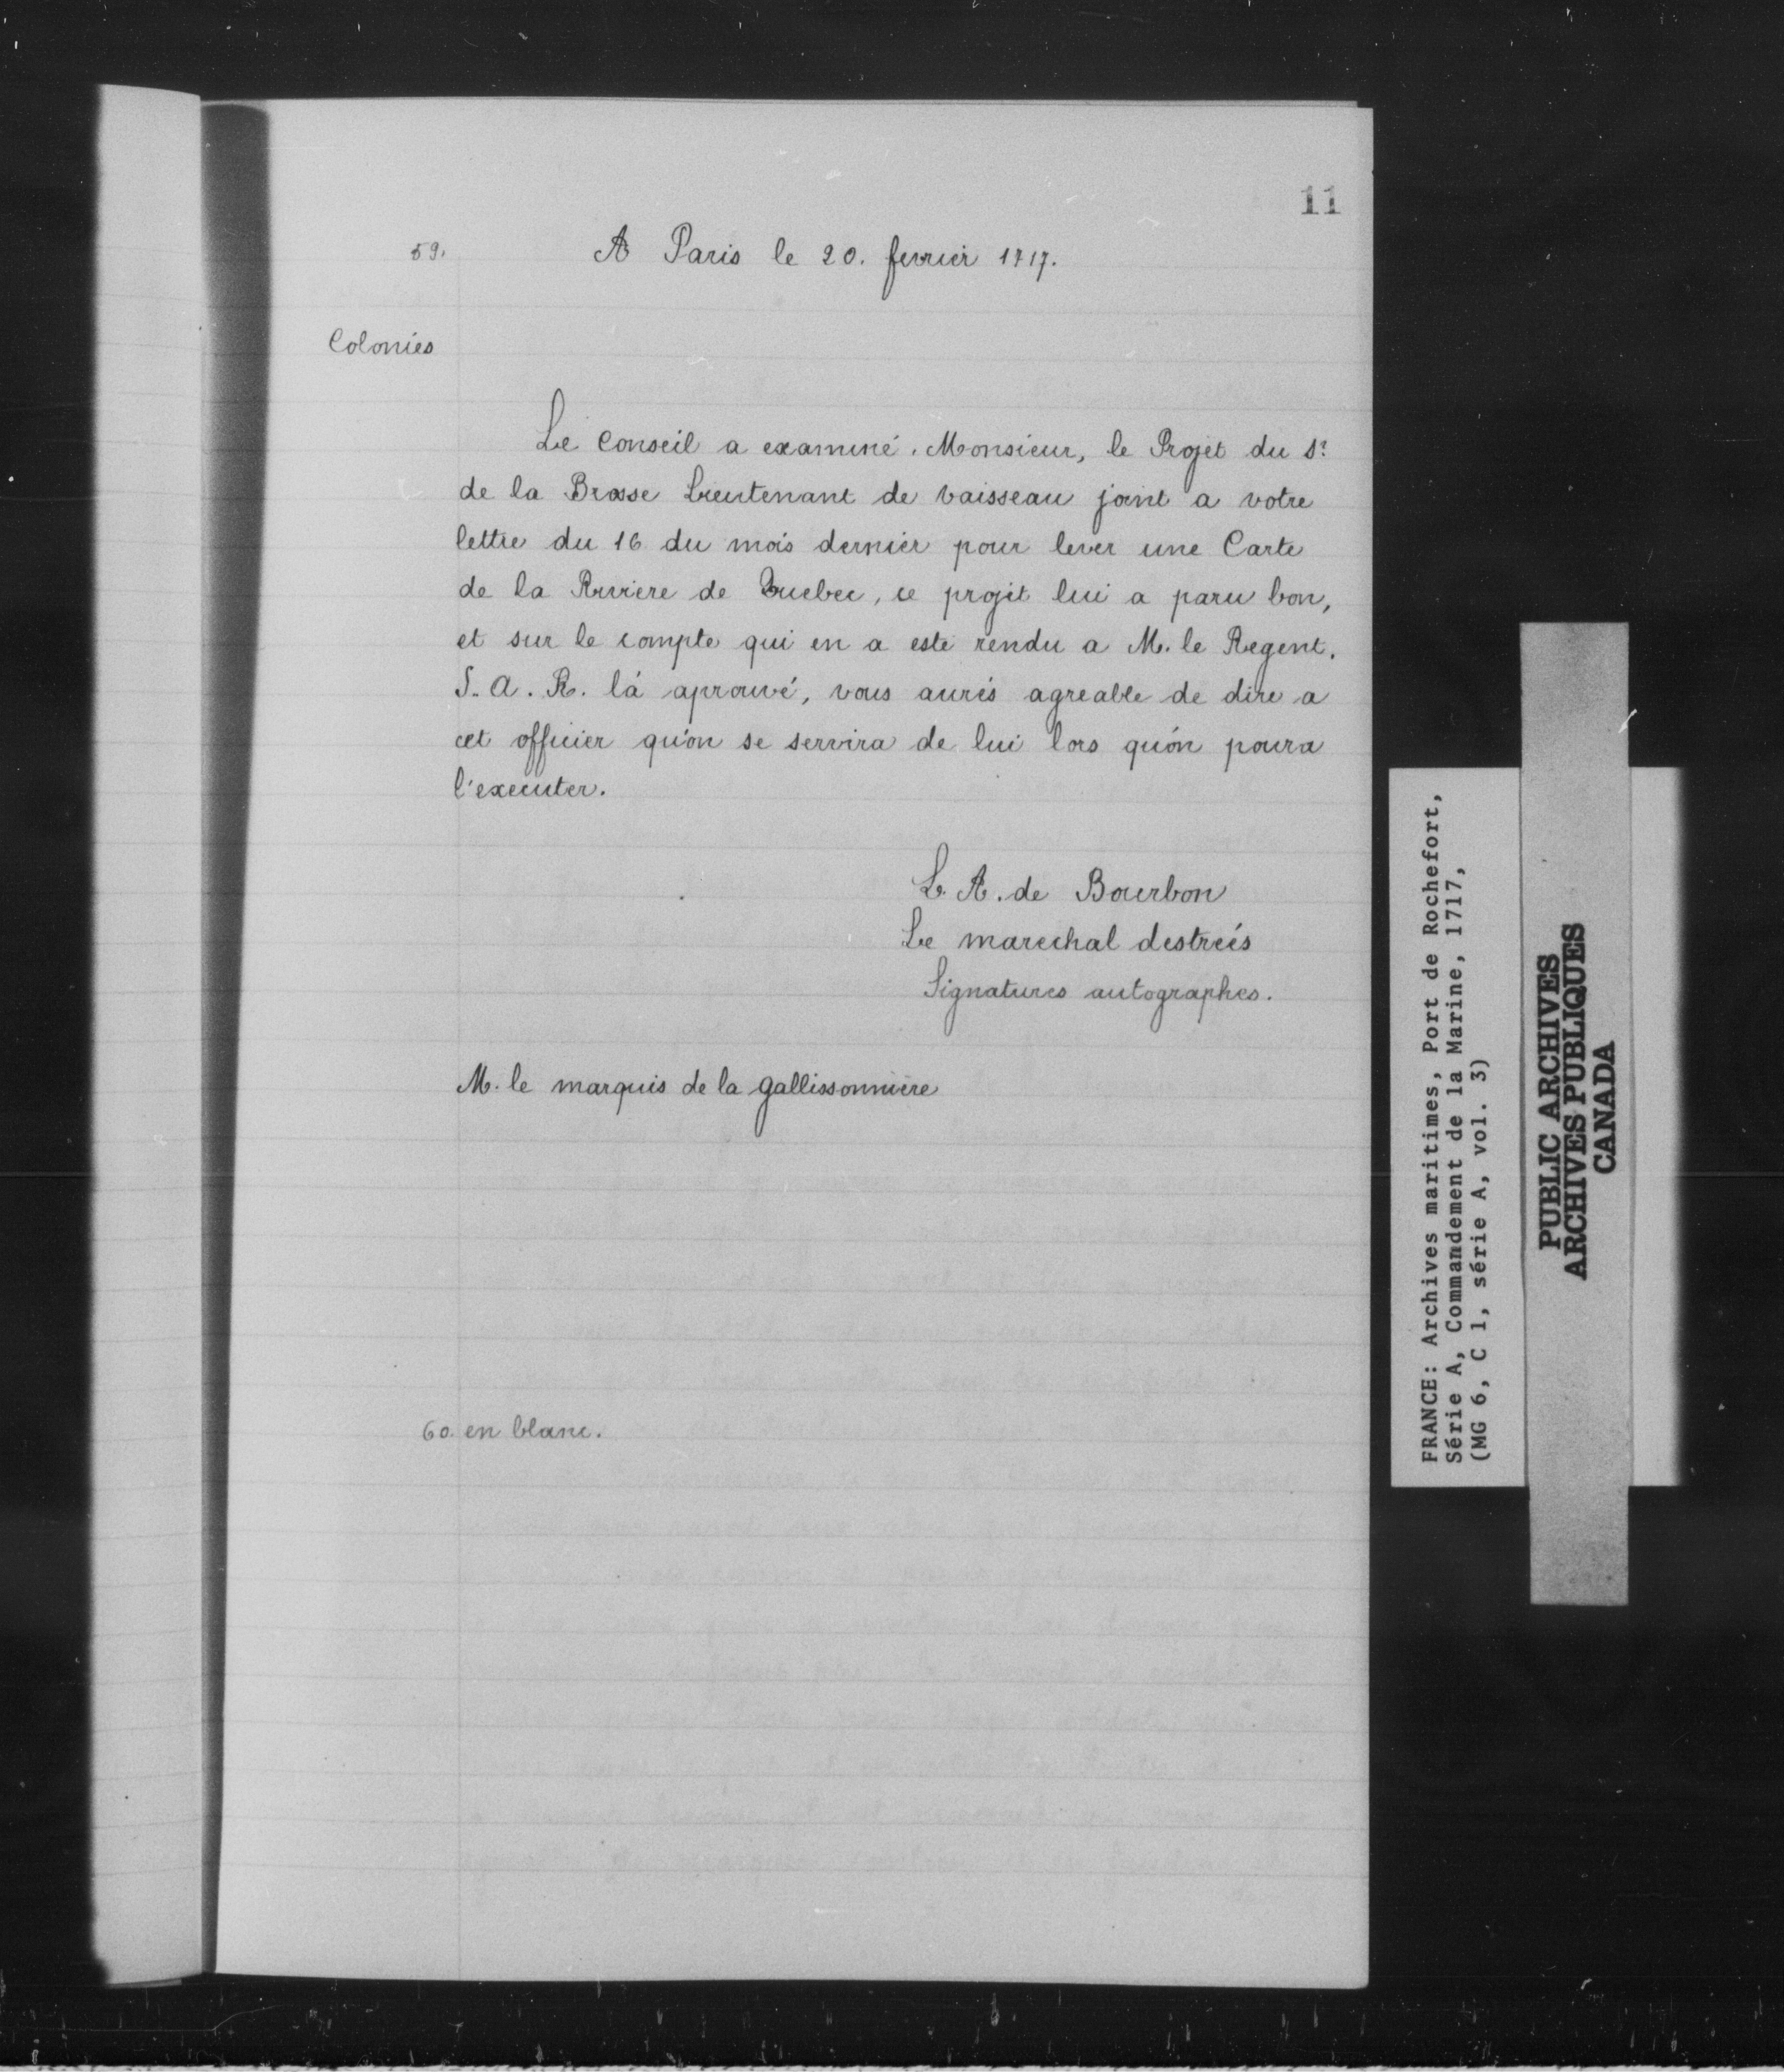 11
59.
A Paris le 20. fevrier 1717.
Colonies
Le Conseil a examiné. Monsieur, le Projet du Sr
de la Brosse Lieutenant de vaisseau joint a votre
lettre du 16 du mois dernier pour lever une Carte
de la Riviere de Quebec, ce projet lui a paru bon,
et sur le compte qui en a esté rendu a M. le Regent.
S. A. R. l'a aprouvé, vous aurés agreable de dire a
cet officier qu'on se servira de lui lors qu'on poura
l'executer.
L. A. de Bourbon
Le marechal destrées
Signatures autographes.
M. le marquis de la gallissonniere
60. en blanc.
FRANCE: Archives maritimes, Port de Rochefort,
Série A, Commandement de la Marine, 1717,
(MG 6, C 1, série A, vol. 3)
PUBLIC ARCHIVES
ARCHIVES PUBLIQUES
CANADA